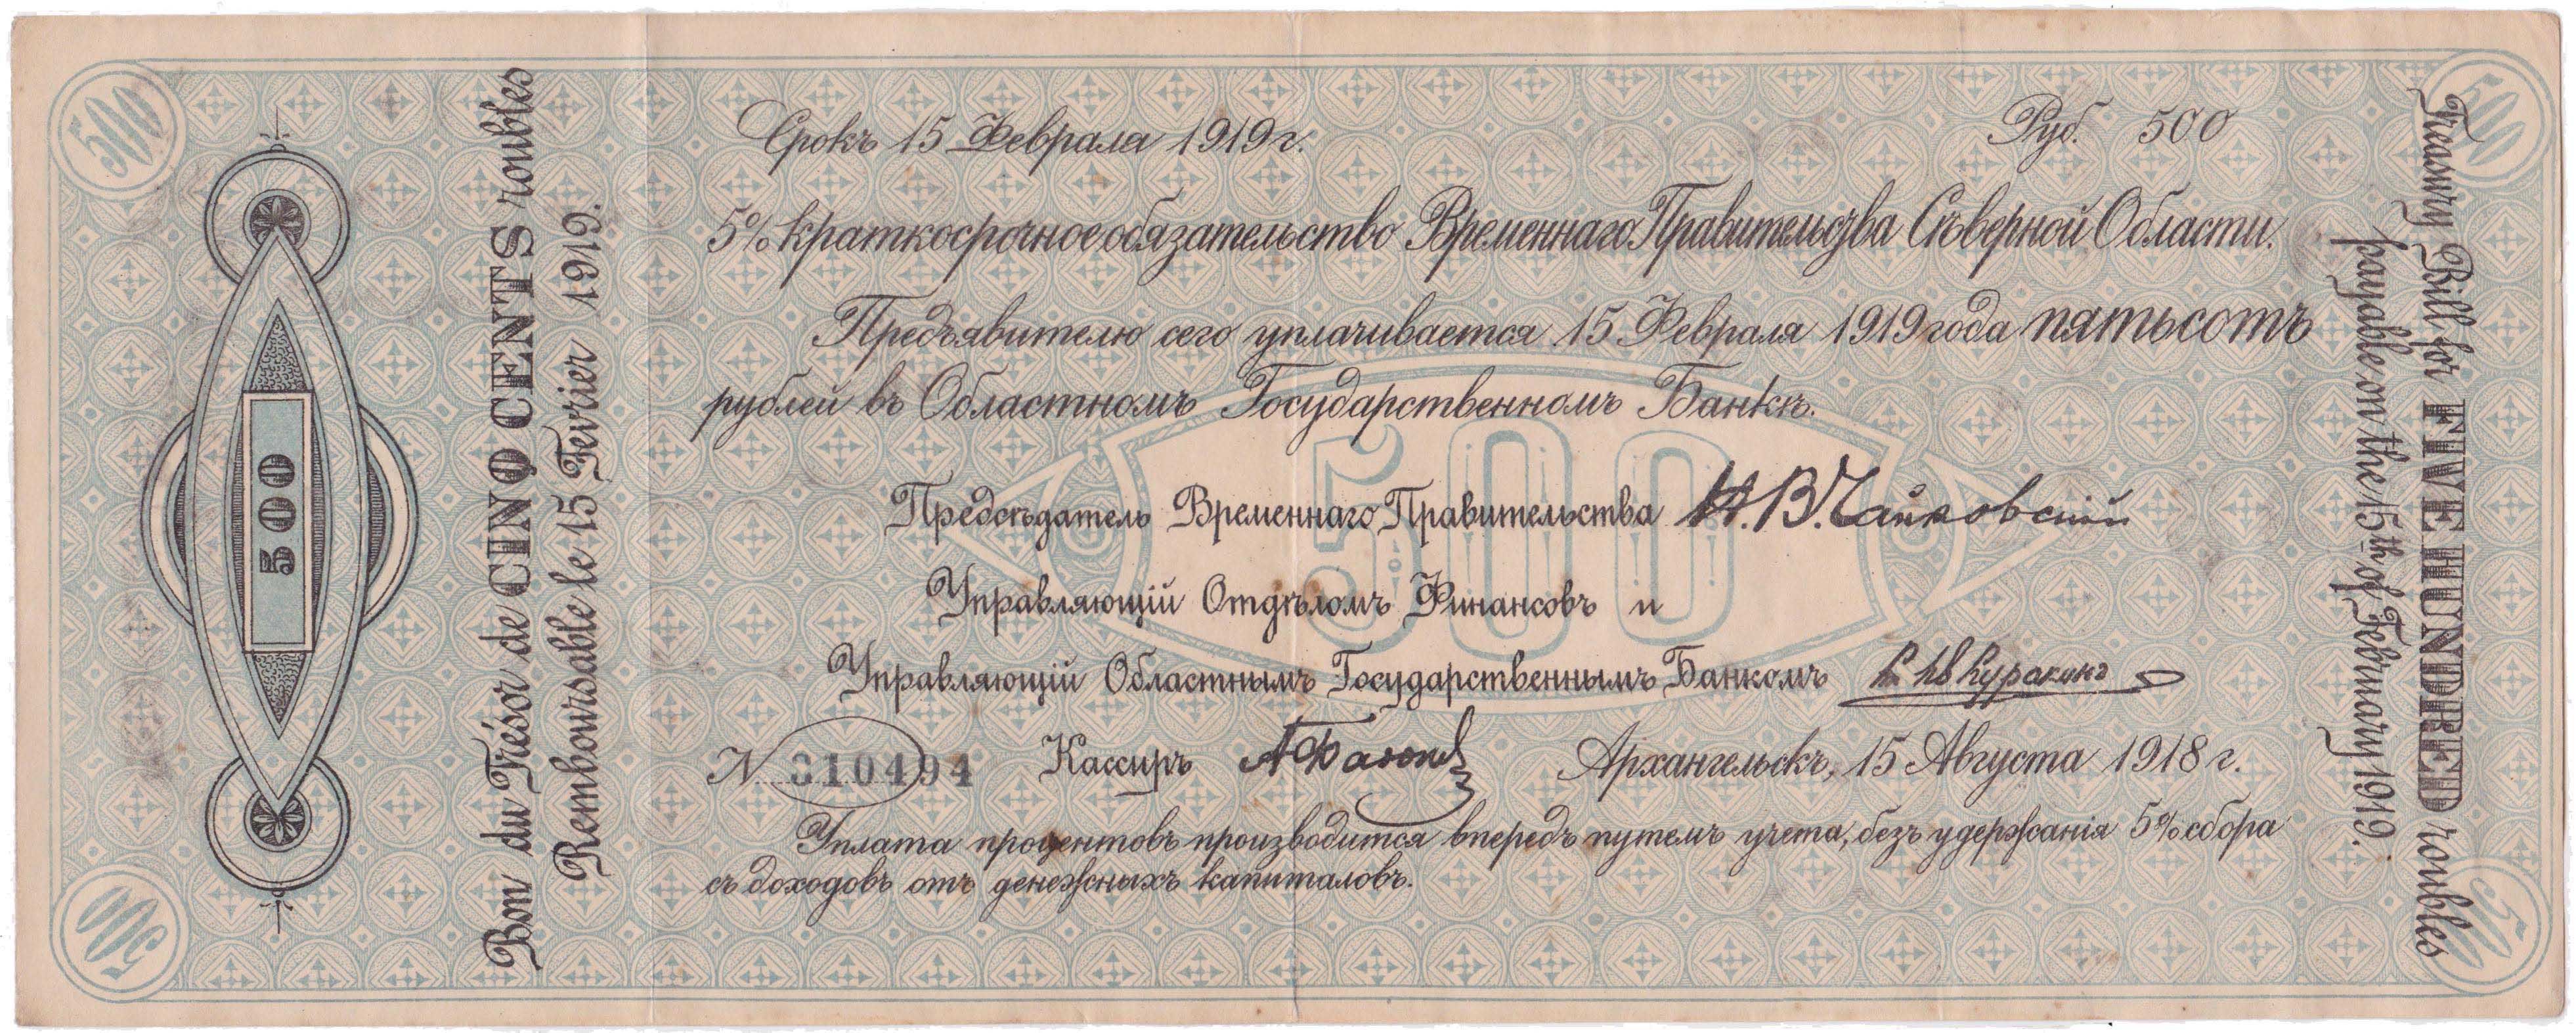 500
500
Срокъ 15 Февраля 1919 г.
Руб. 500
5% краткосрочное обязательство Временнаго Правительства Сѣверной Области.
Предъявителю сего уплачивается 15 Февраля 1919 года пятьсотъ
рублей въ Областномъ Государственномъ Банкѣ.
500
Предсѣдатель Временнаго Правительства Н. В. Чайковскій
Управляющій Отдѣломъ Финансовъ и
Управляющій Областнымъ Государственнымъ Банкомъ
N 310494 Кассиръ
Архангельскъ, 15 Августа 1918 г.
Уплата процентовъ производится впередъ путемъ учета, безъ удержанія 5% сбора
съ доходовъ отъ денежныхъ капиталовъ.
500
Bon du Trésor de CINQ CENTS roubles
Remboursable le 15 Fevrier 1919.
Treasury Bill for FIVE HUNDRED roubles
payable on the 15th of February 1919.
500
500